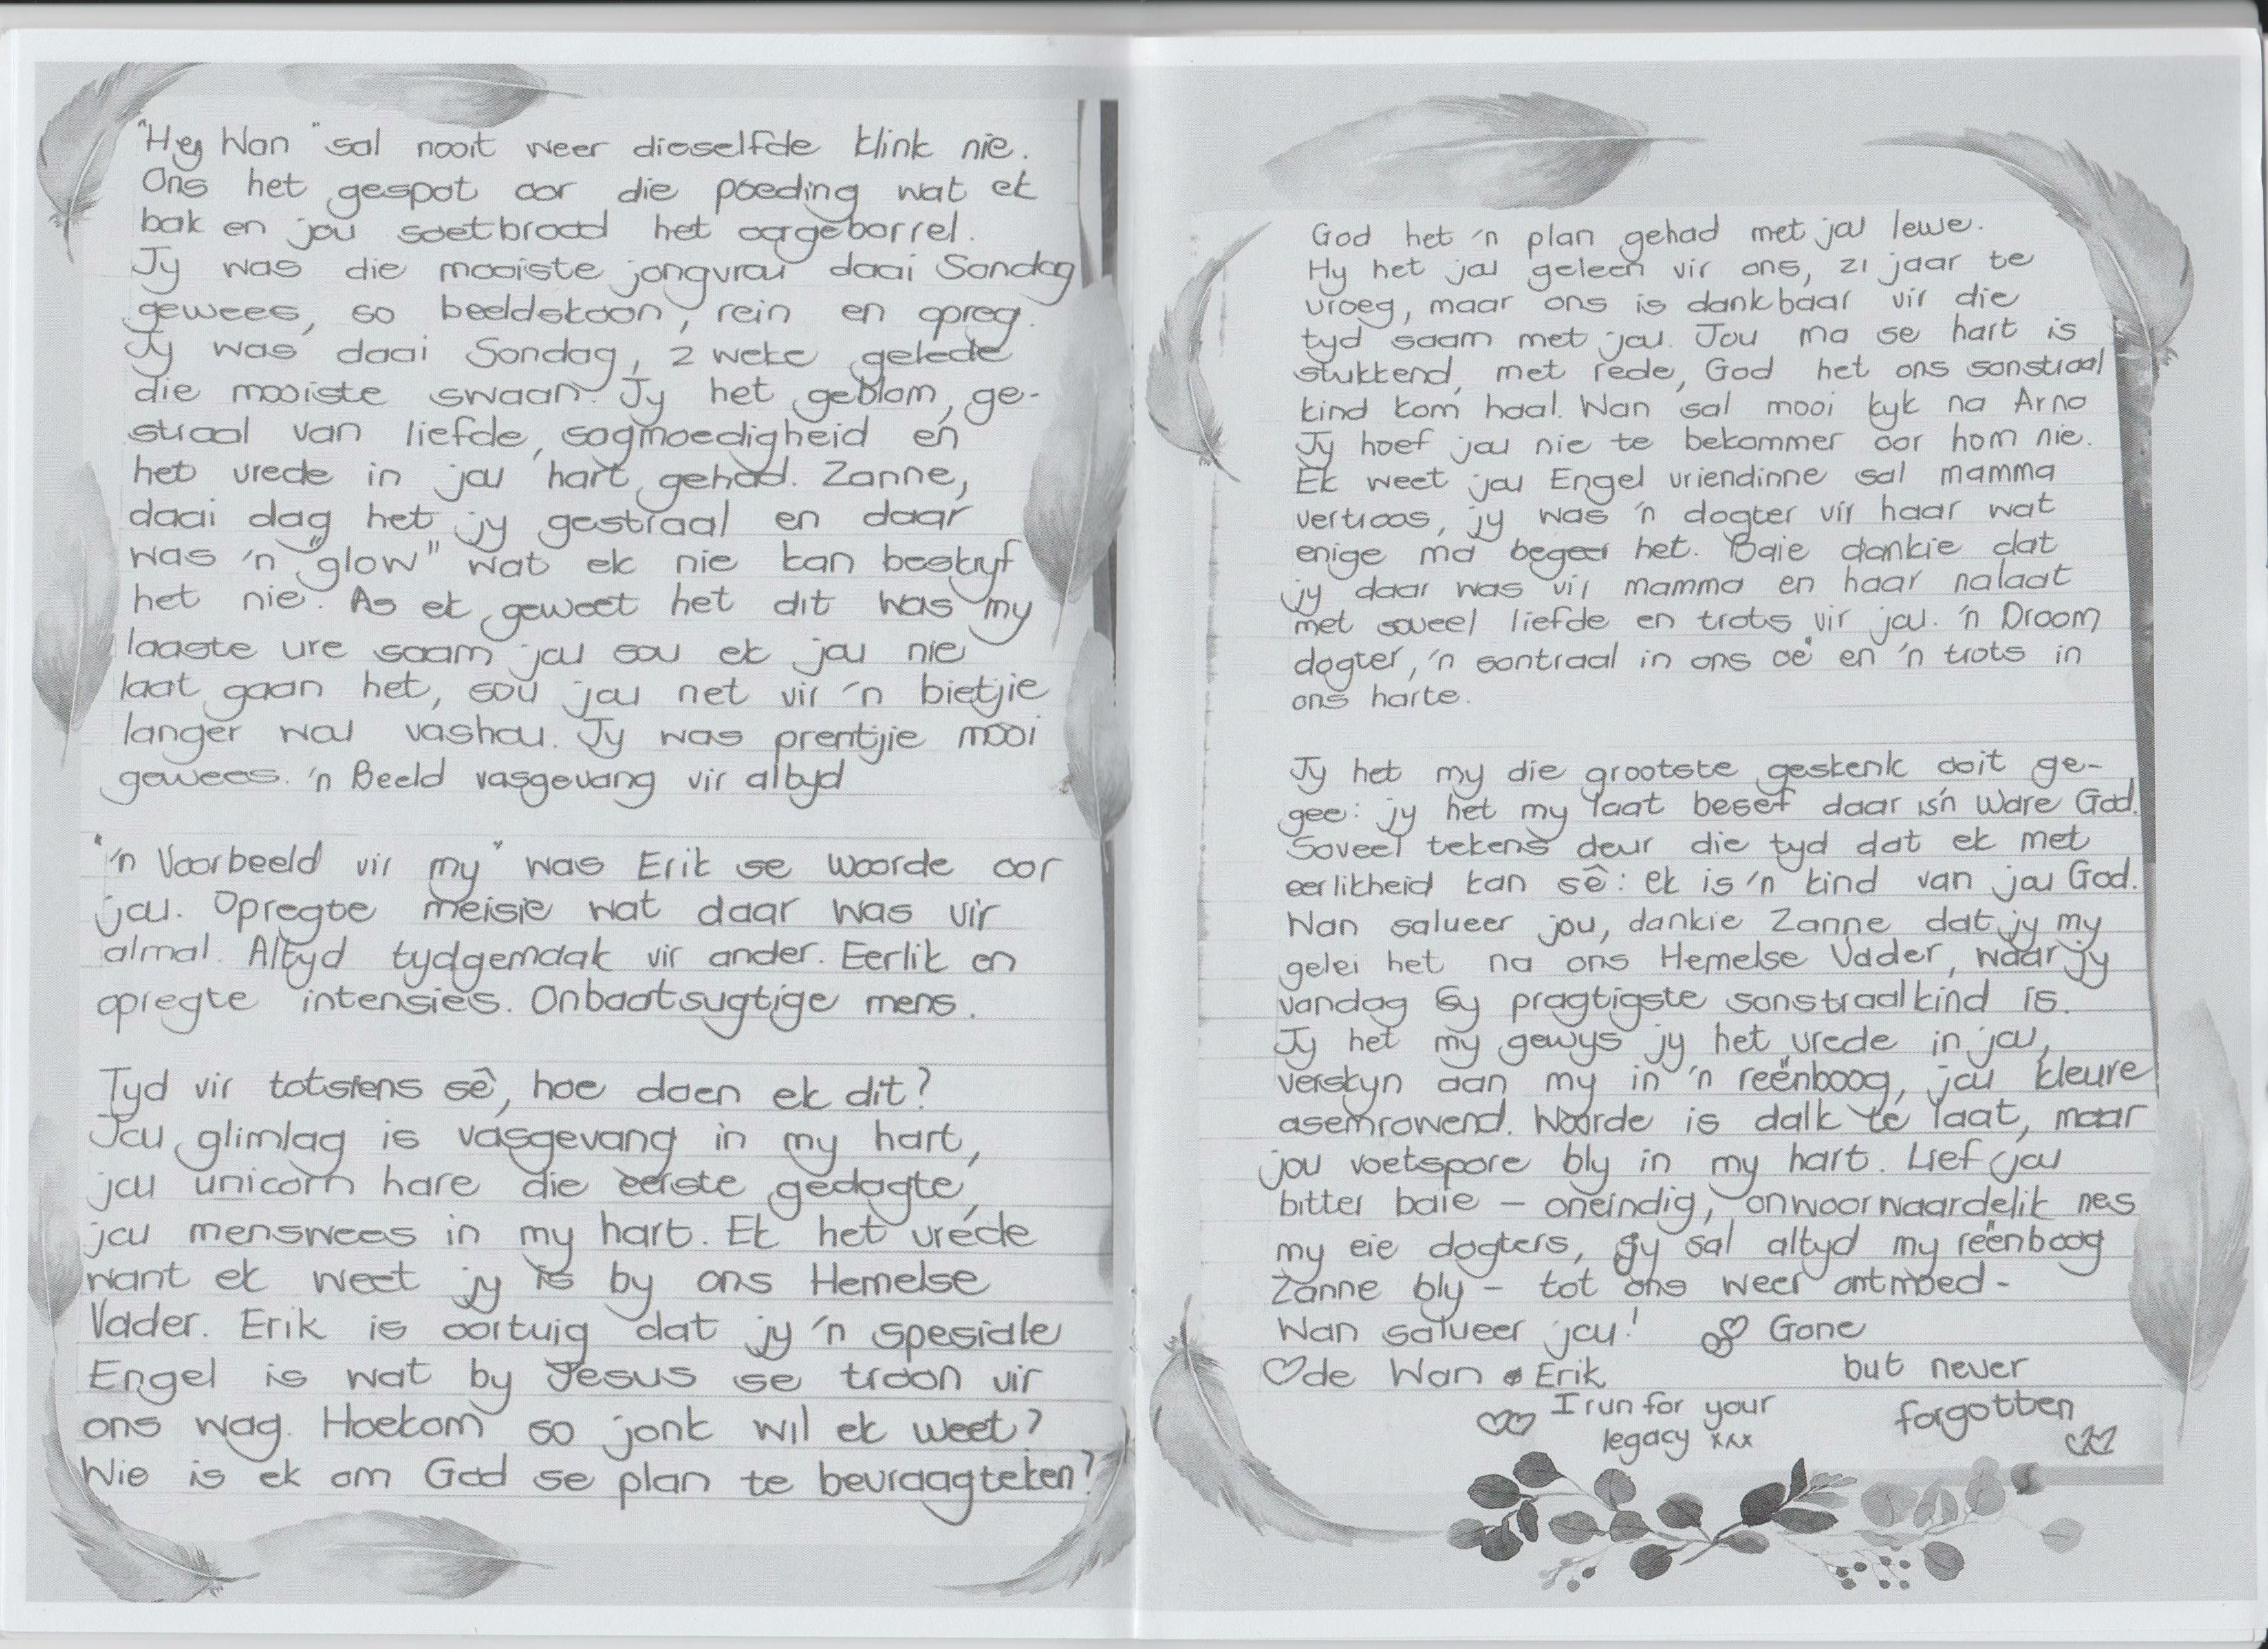 "Hey Wan" sal nooit weer dieselfde klink nie.
Ons het gespot oor die poeding wat ek
bak en jou soetbrood het oorgeborrel.
Jy was die mooiste jongvrou daai Sondag
gewees, so beeldskoon, rein en opreg.
Jy was daai Sondag, 2 weke gelede
die mooiste swaan. Jy het geblom, ge-
straal van liefde, sagmoedigheid en
het vrede in jou hart gehad. Zanne,
daai dag het jy gestraal en daar
was 'n "glow" wat ek nie kan beskryf
het nie. As ek geweet het dit was my
laaste ure saam jou sou ek jou nie
laat gaan het, sou jou net vir 'n bietjie
langer wou vashou. Jy was prentjie mooi
gewees. 'n Beeld vasgevang vir altyd
"'n Voorbeeld vir my" was Erik se woorde oor
jou. Opregte meisie wat daar was vir
almal. Altyd tydgemaak vir ander. Eerlik en
opregte intensies. Onbaatsugtige mens.
Tyd vir totsiens sê, hoe doen ek dit?
Jou glimlag is vasgevang in my hart,
jou unicorn hare die eerste gedagte,
jou menswees in my hart. Ek het vrede
want ek weet jy is by ons Hemelse
Vader. Erik is oortuig dat jy 'n spesiale
Engel is wat by Jesus se troon vir
ons wag. Hoekom so jonk wil ek weet?
Wie is ek om God se plan te bevraagteken?
God het 'n plan gehad met jou lewe.
Hy het jou geleen vir ons, 21 jaar te
vroeg, maar ons is dankbaar vir die
tyd saam met jou. Jou ma se hart is
stukkend, met rede, God het ons sonstraal
kind kom haal. Wan sal mooi kyk na Arno
Jy hoef jou nie te bekommer oor hom nie.
Ek weet jou Engel vriendinne sal mamma
vertroos, jy was 'n dogter vir haar wat
enige ma begeer het. Baie dankie dat
jy daar was vir mamma en haar nalaat
met soveel liefde en trots vir jou. 'n Droom
dogter, 'n sontraal in ons oë en 'n trots in
ons harte.
Jy het my die grootste geskenk ooit ge-
gee: jy het my laat besef daar is'n Ware God.
Soveel tekens deur die tyd dat ek met
eerlikheid kan sê: ek is 'n kind van jou God.
Wan salueer jou, dankie Zanne dat jy my
gelei het na ons Hemelse Vader, waar jy
vandag Sy pragtigste sonstraalkind is.
Jy het my gewys jy het vrede in jou,
verskyn aan my in 'n reënboog, jou kleure
asemrowend. Woorde is dalk te laat, maar
jou voetspore bly in my hart. Lief jou
bitter baie – oneindig, onwoorwaardelik nes
my eie dogters, Jy sal altyd my reënboog
Zanne bly – tot ons weer ontmoed -
Wan salueer jou! Gone
de Wan & Erik but never
I run for your forgotten
legacy xxx